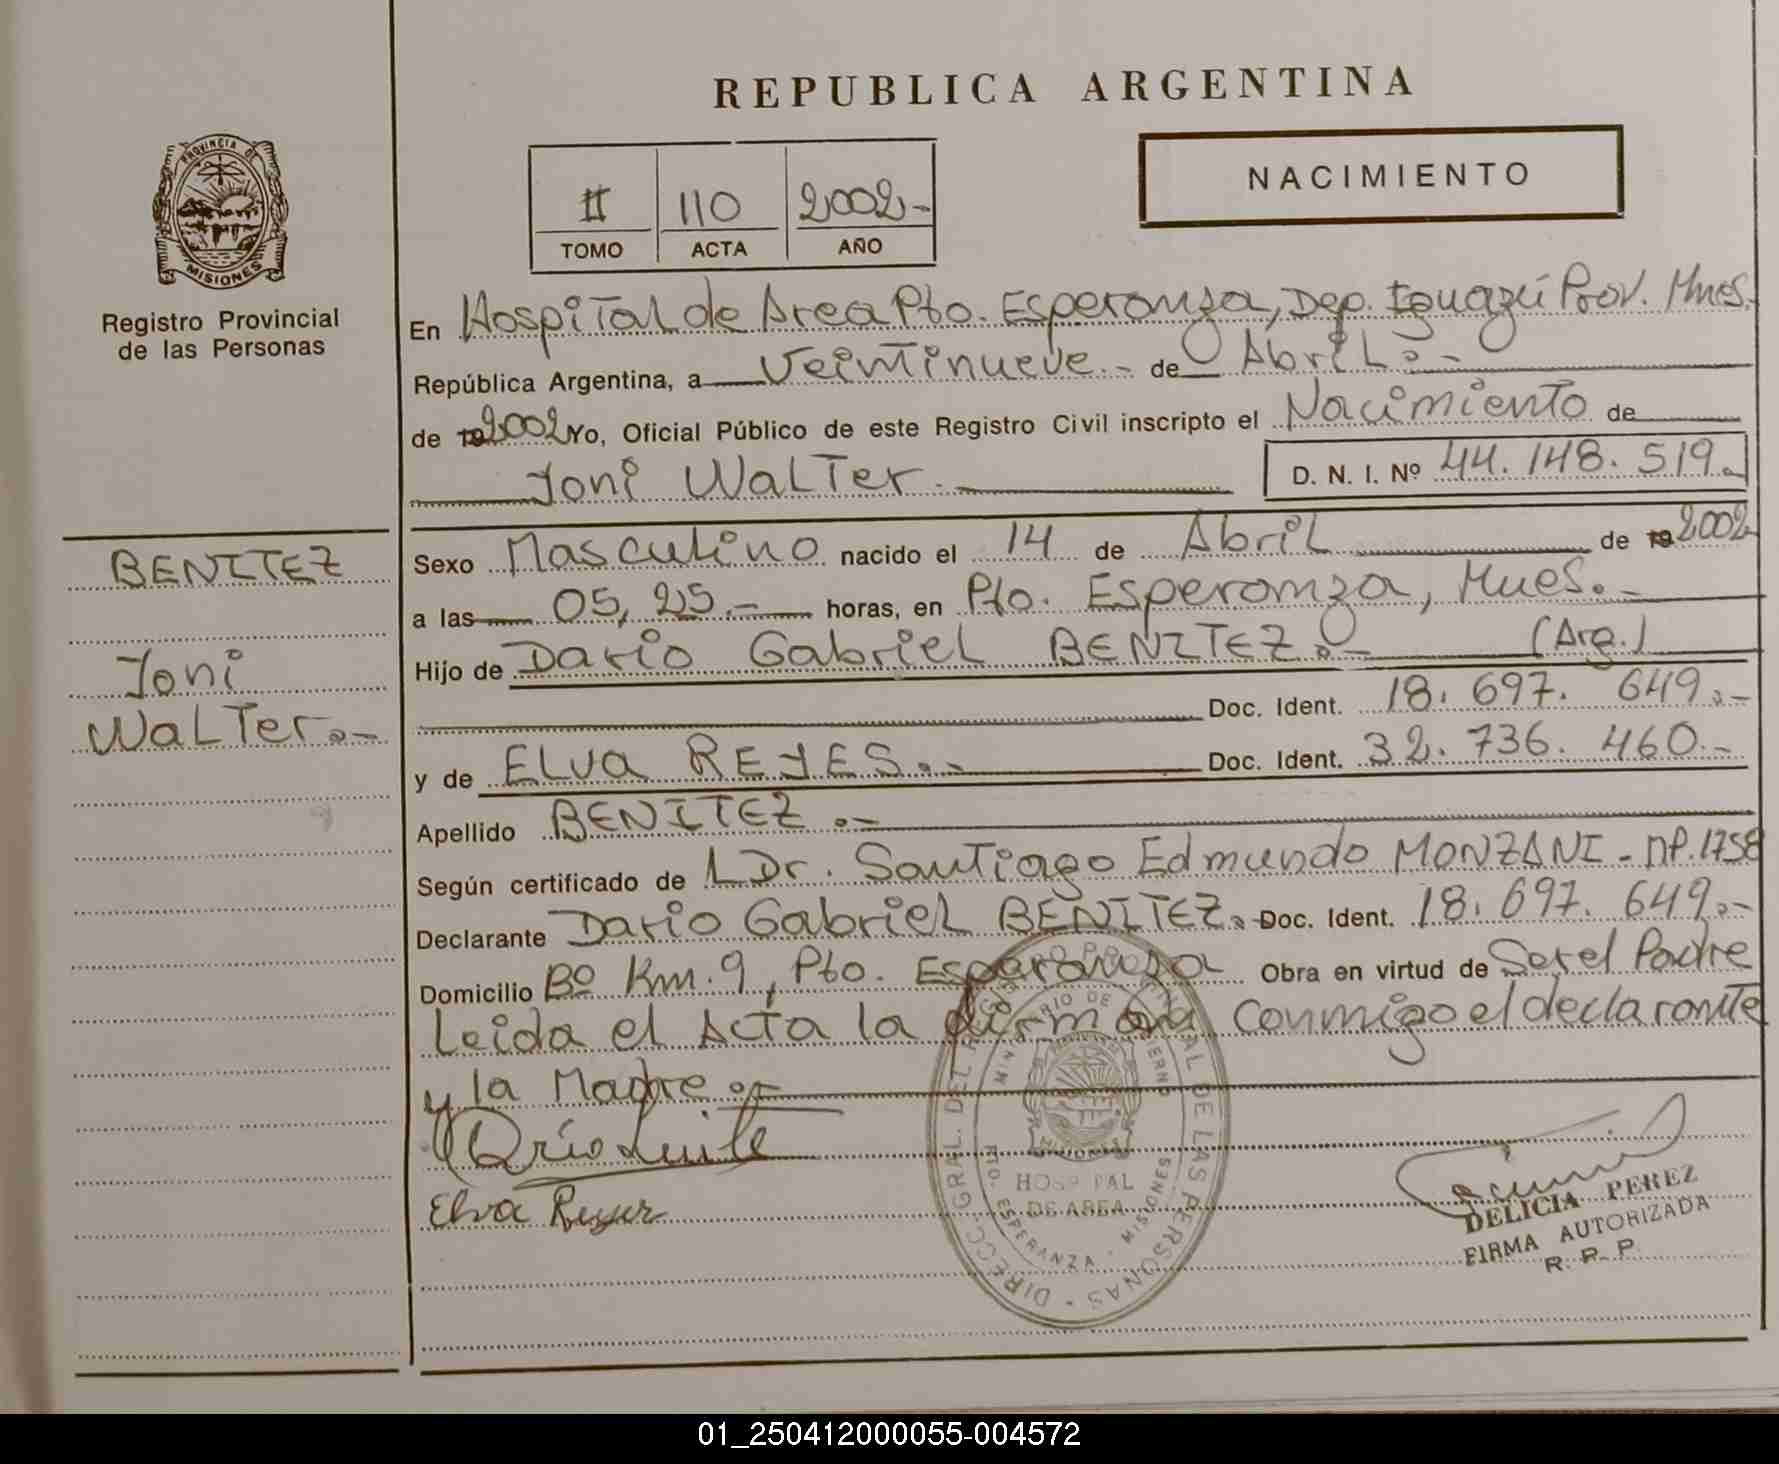 REPUBLICA ARGENTINA
NACIMIENTO
II 110 2002.-
TOMO ACTA AÑO
PROVINCIA DE
MISIONES
Registro Provincial
de las Personas
BENITEZ
Joni
Walter.-
En Hospital de Area Pto. Esperanza, Dep. Iguazú Prov. Mnes.
República Argentina, a Veintinueve.- de Abril.-
de 192002 Yo, Oficial Público de este Registro Civil inscripto el Nacimiento de
Joni Walter.
D. N. I. Nº 44.148.519.-
Sexo Masculino nacido el 14 de Abril de 192002
a las 05,25.- horas, en Pto. Esperanza, Mnes.-
Hijo de Dario Gabriel BENITEZ.- (Arg.)
Doc. Ident. 18.697.649.-
y de ELva REYES.- Doc. Ident. 32.736.460.-
Apellido BENITEZ.-
Según certificado de Dr. Santiago Edmundo MONZANI - MP.1758
Declarante Dario Gabriel BENITEZ.- Doc. Ident. 18.697.649.-
Domicilio Bº Km. 9, Pto. Esperanza Obra en virtud de Ser el Padre
Leida el Acta la firman Conmigo el declarante
y la Madre.-
Elva Reyes
DIRECC. GRAL. DEL REGISTRO PROVINCIAL DE LAS PERSONAS
MINISTERIO DE GOBIERNO
HOSPITAL
DE AREA
PTO. ESPERANZA - MISIONES
DELICIA PEREZ
FIRMA AUTORIZADA
R. P. P.
01_250412000055-004572